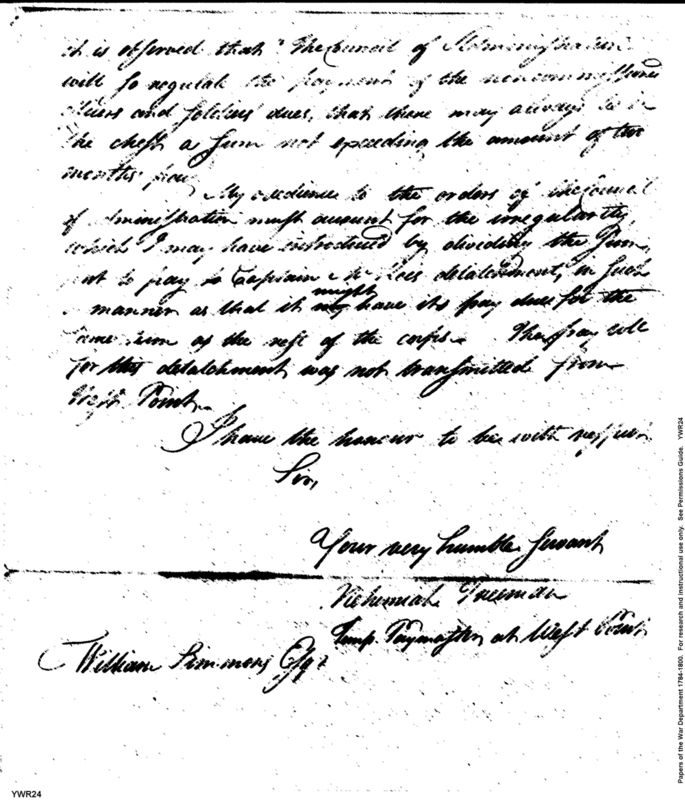 it is observed that "The Council of Administration
will so regulate the payment of the noncommissioned
officers and soldiers dues, that there may always be in
the chest a sum not exceeding the amount of two
months pay
My obedience to the orders of the Council
of Administration must account for the irregularity,
which I may have introduced by dividing the sum,
to pay to Captain detachment, in such
manner as that it might have its pay due for the
same term as the rest of the corps. The pay roll
for this detachment was not transmitted from
West Point.
I have the honour to be with respect
Sir,
Your very humble Servant
Nehemiah Freeman
Temp. Paymaster at West Point
William Simmons Esqr
YWR24
Papers of the War Department 1784-1800. For research and instructional use only. See Permissions Guide. YWR24